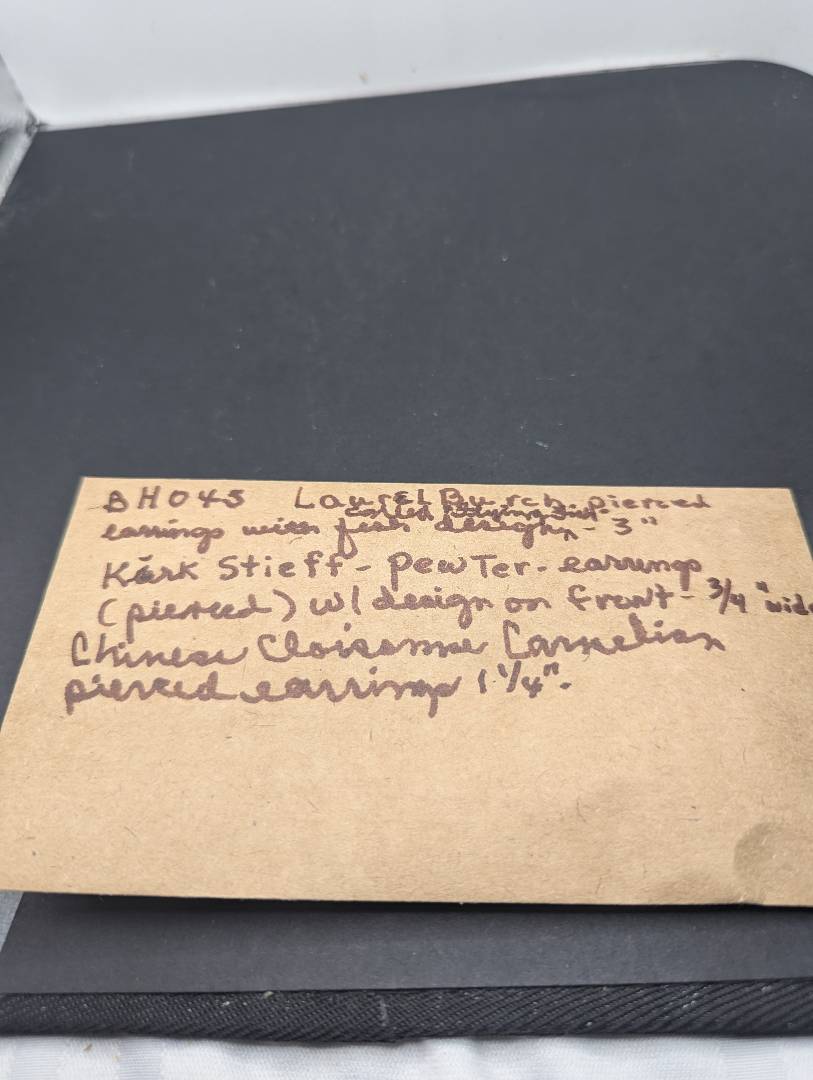 BH045 Laurel Burch pierced
called "Flying Fish"
earrings with fish design - 3"
Kirk Stieff - pewter - earrings
(pierced) w/ design on front - 3/4" wide
Chinese Cloisonne Carnelian
pierced earrings 1 1/4".